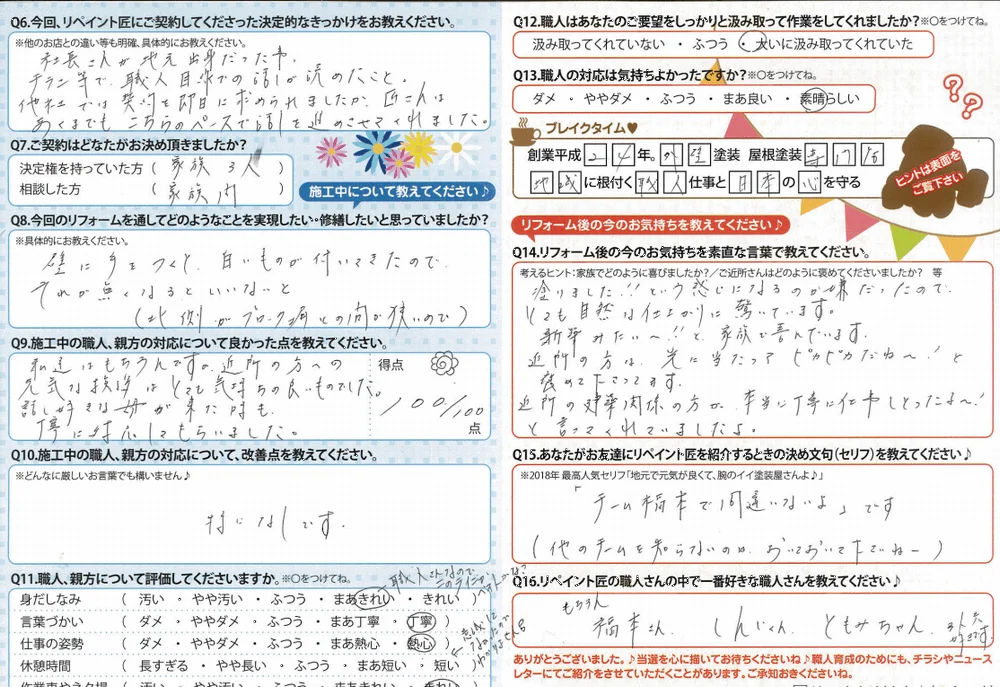 Q6.今回、リペイント匠にご契約してくださった決定的なきっかけをお教えください。
※他のお店との違い等も明確、具体的にお教えください。
社長さんが地元出身だった事。
チラシ等で、職人目線での話が読めたこと。
他社では契約を即日に求められましたが、匠さんは
あくまでも こちらのペースで話を進めさせてくれました。
Q7.ご契約はどなたがお決め頂きましたか?
決定権を持っていた方 ( 家族 3人 )
相談した方 ( 家族間 )
施工中について教えてください♪
Q8.今回のリフォームを通してどのようなことを実現したい・修繕したいと思っていましたか?
※具体的にお教えください。
壁に手をつくと、白いものが付いてきたので
それが無くなるといいなと
(北側がブロック塀との間が狭いので)
Q9.施工中の職人、親方の対応について良かった点を教えてください。
私達はもちろんですが、近所の方への
元気な挨拶はとても気持ちの良いものでした。
話し好きな母が来た時も、
丁寧に対応してもらいました。
得点
100/100
点
Q10.施工中の職人、親方の対応について、改善点を教えてください。
※どんなに厳しいお言葉でも構いません♪
特になしです。
Q11.職人、親方について評価してくださいますか。※○をつけてね。
職人さんなので
身だしなみ ( 汚い ・ やや汚い ・ ふつう ・ まあきれい ・ きれい )
言葉づかい ( ダメ ・ ややダメ ・ ふつう ・ まあ丁寧 ・ 丁寧 )
仕事の姿勢 ( ダメ ・ ややダメ ・ ふつう ・ まあ熱心 ・ 熱心 )
休憩時間 ( 長すぎる ・ やや長い ・ ふつう ・ まあ短い ・ 短い )
Q12.職人はあなたのご要望をしっかりと汲み取って作業をしてくれましたか?※○をつけてね。
汲み取ってくれていない ・ ふつう ・ 大いに汲み取ってくれていた
Q13.職人の対応は気持ちよかったですか?※○をつけてね。
ダメ ・ ややダメ ・ ふつう ・ まあ良い ・ 素晴らしい
ブレイクタイム♥
創業平成24年。外壁塗装 屋根塗装専門店
地域に根付く職人仕事と日本の心を守る
ヒントは表面を
ご覧下さい
リフォーム後の今のお気持ちを教えてください♪
Q14.リフォーム後の今のお気持ちを素直な言葉で教えてください。
考えるヒント:家族でどのように喜びましたか?/ご近所さんはどのように褒めてくださいましたか? 等
塗りました!!という感じになるのが嫌だったので、
とても自然な仕上がりに驚いています。
新築みたい〜!!と、家族で喜んでいます。
近所の方は、光に当たって ピカピカだね〜!と
褒めて下さってます。
近所の建築関係の方が、本当に丁寧に仕事しとったよ〜!
と言ってくれていましたよ。
Q15.あなたがお友達にリペイント匠を紹介するときの決め文句(セリフ)を教えてください♪
※2018年 最高人気セリフ「地元で元気が良くて、腕のイイ塗装屋さんよ♪」
「チーム福本で間違いないよ」です
(他のチームを知らないのは、おいておいて下さいねー)
Q16.リペイント匠の職人さんの中で一番好きな職人さんを教えてください♪
もちろん
福本さん、しんじくん、ともみちゃん、
ありがとうございました。♪当選を心に描いてお待ちくださいね♪職人育成のためにも、チラシやニュース
レターにてご紹介をさせていただくことがあります。ご承知おきくださいね。